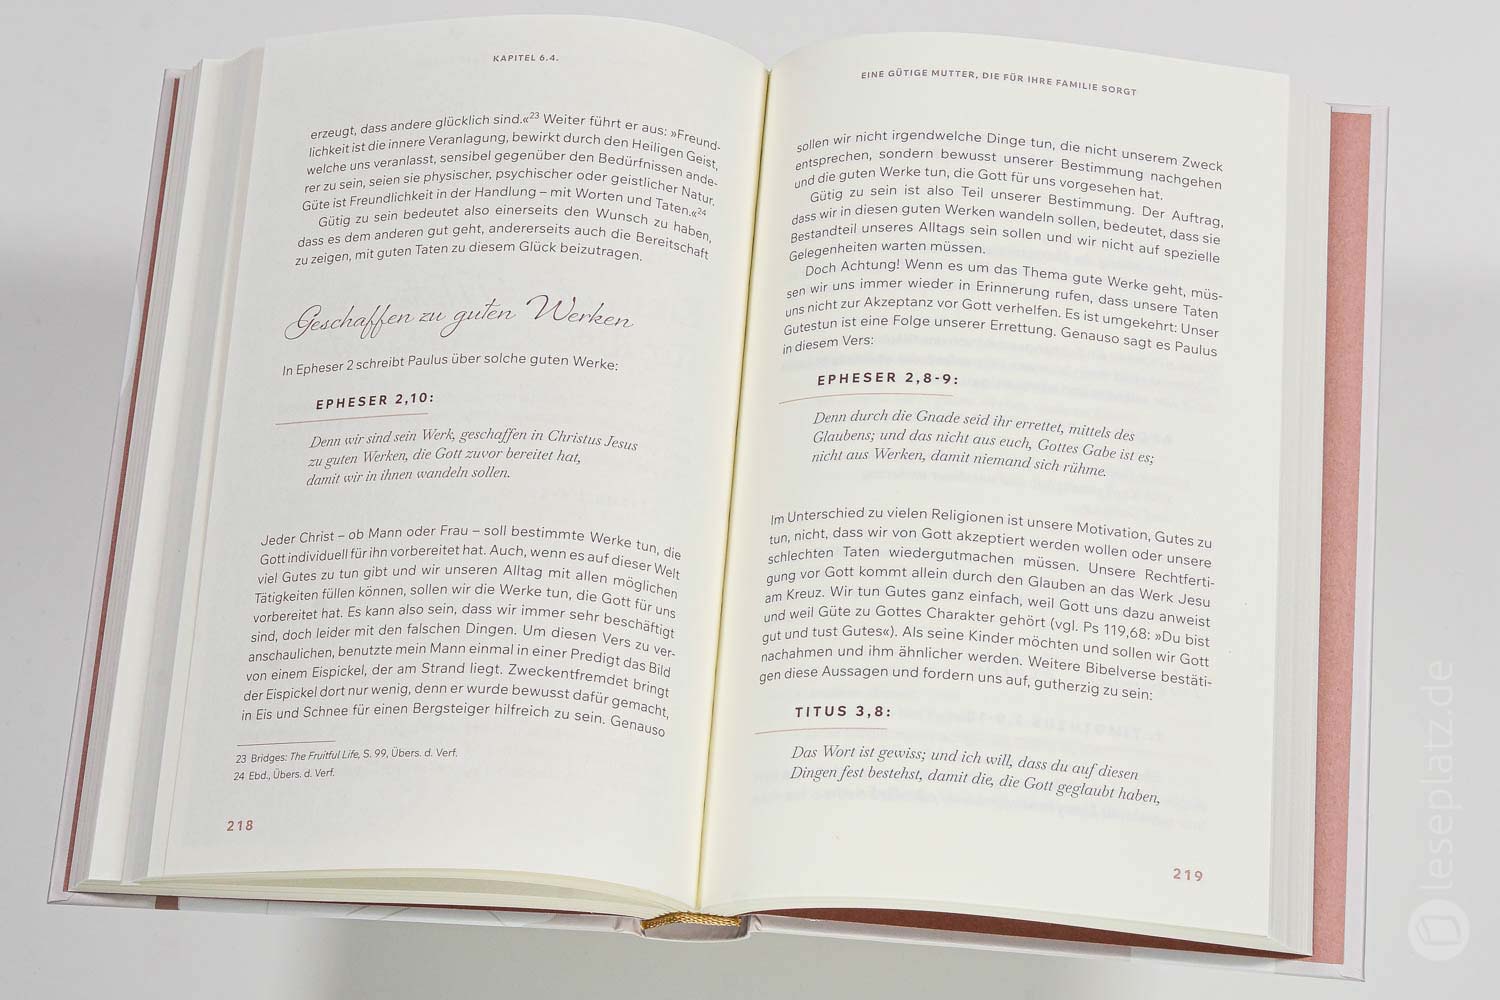 KAPITEL 6.4.
erzeugt, dass andere glücklich sind.«23 Weiter führt er aus: »Freund-
lichkeit ist die innere Veranlagung, bewirkt durch den Heiligen Geist,
welche uns veranlasst, sensibel gegenüber den Bedürfnissen ande-
rer zu sein, seien sie physischer, psychischer oder geistlicher Natur.
Güte ist Freundlichkeit in der Handlung – mit Worten und Taten.«24
Gütig zu sein bedeutet also einerseits den Wunsch zu haben,
dass es dem anderen gut geht, andererseits auch die Bereitschaft
zu zeigen, mit guten Taten zu diesem Glück beizutragen.
Geschaffen zu guten Werken
In Epheser 2 schreibt Paulus über solche guten Werke:
EPHESER 2,10:
Denn wir sind sein Werk, geschaffen in Christus Jesus
zu guten Werken, die Gott zuvor bereitet hat,
damit wir in ihnen wandeln sollen.
Jeder Christ – ob Mann oder Frau – soll bestimmte Werke tun, die
Gott individuell für ihn vorbereitet hat. Auch, wenn es auf dieser Welt
viel Gutes zu tun gibt und wir unseren Alltag mit allen möglichen
Tätigkeiten füllen können, sollen wir die Werke tun, die Gott für uns
vorbereitet hat. Es kann also sein, dass wir immer sehr beschäftigt
sind, doch leider mit den falschen Dingen. Um diesen Vers zu ver-
anschaulichen, benutzte mein Mann einmal in einer Predigt das Bild
von einem Eispickel, der am Strand liegt. Zweckentfremdet bringt
der Eispickel dort nur wenig, denn er wurde bewusst dafür gemacht,
in Eis und Schnee für einen Bergsteiger hilfreich zu sein. Genauso
23 Bridges: The Fruitful Life, S. 99, Übers. d. Verf.
24 Ebd., Übers. d. Verf.
218
EINE GÜTIGE MUTTER, DIE FÜR IHRE FAMILIE SORGT
sollen wir nicht irgendwelche Dinge tun, die nicht unserem Zweck
entsprechen, sondern bewusst unserer Bestimmung nachgehen
und die guten Werke tun, die Gott für uns vorgesehen hat.
Gütig zu sein ist also Teil unserer Bestimmung. Der Auftrag,
dass wir in diesen guten Werken wandeln sollen, bedeutet, dass sie
Bestandteil unseres Alltags sein sollen und wir nicht auf spezielle
Gelegenheiten warten müssen.
Doch Achtung! Wenn es um das Thema gute Werke geht, müs-
sen wir uns immer wieder in Erinnerung rufen, dass unsere Taten
uns nicht zur Akzeptanz vor Gott verhelfen. Es ist umgekehrt: Unser
Gutestun ist eine Folge unserer Errettung. Genauso sagt es Paulus
in diesem Vers:
EPHESER 2,8-9:
Denn durch die Gnade seid ihr errettet, mittels des
Glaubens; und das nicht aus euch, Gottes Gabe ist es;
nicht aus Werken, damit niemand sich rühme.
Im Unterschied zu vielen Religionen ist unsere Motivation, Gutes zu
tun, nicht, dass wir von Gott akzeptiert werden wollen oder unsere
schlechten Taten wiedergutmachen müssen. Unsere Rechtferti-
gung vor Gott kommt allein durch den Glauben an das Werk Jesu
am Kreuz. Wir tun Gutes ganz einfach, weil Gott uns dazu anweist
und weil Güte zu Gottes Charakter gehört (vgl. Ps 119,68: »Du bist
gut und tust Gutes«). Als seine Kinder möchten und sollen wir Gott
nachahmen und ihm ähnlicher werden. Weitere Bibelverse bestäti-
gen diese Aussagen und fordern uns auf, gutherzig zu sein:
TITUS 3,8:
Das Wort ist gewiss; und ich will, dass du auf diesen
Dingen fest bestehst, damit die, die Gott geglaubt haben,
219
leseplatz.de